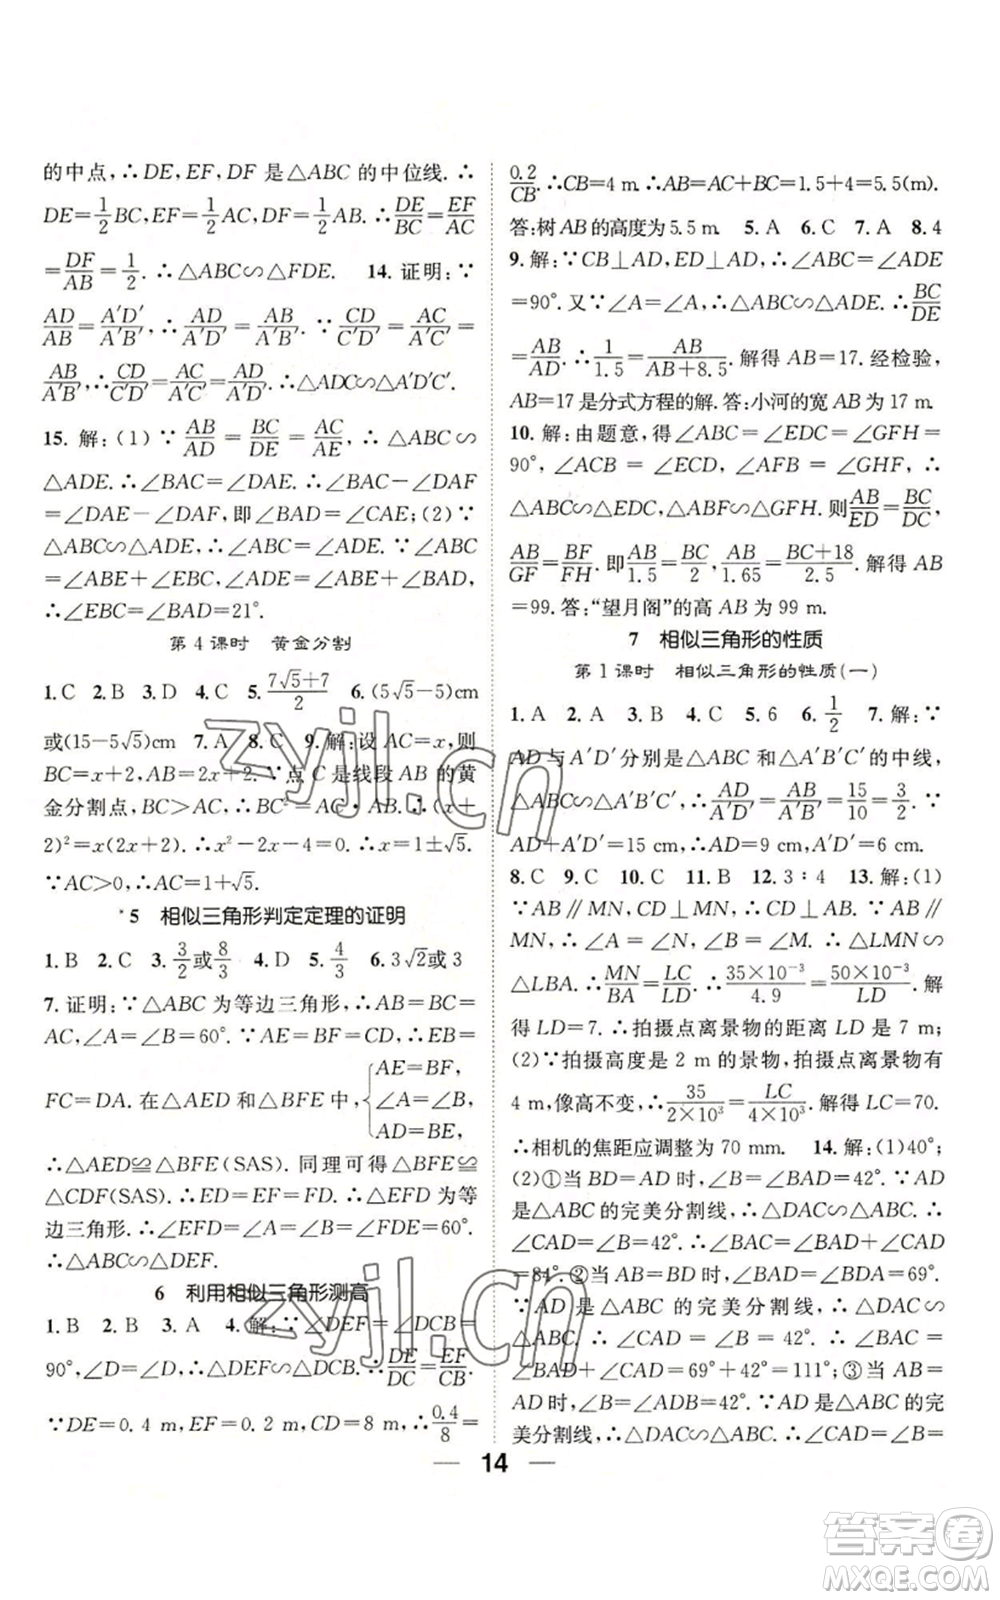 的中点,∴DE,EF,DF 是△ABC 的中位线.∴
DE=1/2BC,EF=1/2AC,DF=1/2AB.∴DE/BC=EF/AC
=DF/AB=1/2.∴△ABC∽△FDE. 14.证明:∵
AD/AB=A′D′/A′B′,∴AD/A′D′=AB/A′B′.∵CD/C′D′=AC/A′C′=
AB/A′B′,∴CD/C′D′=AC/A′C′=AD/A′D′.∴△ADC∽△A′D′C′.
15.解:(1)∵AB/AD=BC/DE=AC/AE,∴△ABC∽
△ADE.∴∠BAC=∠DAE.∴∠BAC-∠DAF
=∠DAE-∠DAF,即∠BAD=∠CAE;(2)∵
△ABC∽△ADE,∴∠ABC=∠ADE.∵∠ABC
=∠ABE+∠EBC,∠ADE=∠ABE+∠BAD,
∴∠EBC=∠BAD=21°.
第 4 课时 黄金分割
1.C 2.B 3.D 4.C 5.(7√5+7)/2 6.(5√5-5)cm
或(15-5√5)cm 7.A 8.C 9.解:设 AC=x,则
BC=x+2,AB=2x+2.∵点 C 是线段 AB 的黄
金分割点,BC>AC,∴BC²=AC·AB.∴(x+
2)²=x(2x+2).∴x²-2x-4=0.∴x=1±√5.
∵AC>0,∴AC=1+√5.
*5 相似三角形判定定理的证明
1.B 2.C 3.3/2或8/3 4.D 5.4/3 6.3√2或 3
7.证明:∵△ABC 为等边三角形,∴AB=BC=
AC,∠A=∠B=60°.∵AE=BF=CD,∴EB=
FC=DA.在△AED 和△BFE 中,{AE=BF,
∠A=∠B,
AD=BE,
∴△AED≌△BFE(SAS).同理可得△BFE≌
△CDF(SAS).∴ED=EF=FD.∴△EFD 为等
边三角形.∴∠EFD=∠A=∠B=∠FDE=60°.
∴△ABC∽△DEF.
6 利用相似三角形测高
1.B 2.B 3.A 4.解:∵∠DEF=∠DCB=
90°,∠D=∠D,∴△DEF∽△DCB.∴DE/DC=EF/CB.
∵DE=0.4 m,EF=0.2 m,CD=8 m,∴0.4/8=
0.2/CB.∴CB=4 m.∴AB=AC+BC=1.5+4=5.5(m).
答:树 AB 的高度为 5.5 m. 5.A 6.C 7.A 8.4
9.解:∵CB⊥AD,ED⊥AD,∴∠ABC=∠ADE
=90°.又∵∠A=∠A,∴△ABC∽△ADE.∴BC/DE
=AB/AD.∴1/1.5=AB/(AB+8.5).解得 AB=17.经检验,
AB=17 是分式方程的解.答:小河的宽 AB 为 17 m.
10.解:由题意,得∠ABC=∠EDC=∠GFH=
90°,∠ACB=∠ECD,∠AFB=∠GHF,∴
△ABC∽△EDC,△ABF∽△GFH.则AB/ED=BC/DC,
AB/GF=BF/FH.即AB/1.5=BC/2,AB/1.65=(BC+18)/2.5.解得 AB
=99.答:“望月阁”的高 AB 为 99 m.
7 相似三角形的性质
第 1 课时 相似三角形的性质(一)
1.A 2.A 3.B 4.C 5.6 6.1/2 7.解:∵
AD 与 A′D′分别是△ABC 和△A′B′C′的中线,
△ABC∽△A′B′C′,∴AD/A′D′=AB/A′B′=15/10=3/2.∵
AD+A′D′=15 cm,∴AD=9 cm,A′D′=6 cm.
8.C 9.C 10.C 11.B 12.3∶4 13.解:(1)
∵AB∥MN,CD⊥MN,∴LD⊥AB.∵AB∥
MN,∴∠A=∠N,∠B=∠M.∴△LMN∽
△LBA.∴MN/BA=LC/LD.∴(35×10⁻³)/4.9=(50×10⁻³)/LD.解
得 LD=7.∴拍摄点离景物的距离 LD 是 7 m;
(2)∵拍摄高度是 2 m 的景物,拍摄点离景物有
4 m,像高不变,∴35/(2×10³)=LC/(4×10³).解得 LC=70.
∴相机的焦距应调整为 70 mm. 14.解:(1)40°;
(2)①当 BD=AD 时,∠BAD=∠B=42°.∵AD
是△ABC 的完美分割线,∴△DAC∽△ABC.∴
∠CAD=∠B=42°.∴∠BAC=∠BAD+∠CAD
=84°.②当 AB=BD 时,∠BAD=∠BDA=69°.
∵AD 是△ABC 的完美分割线,∴△DAC∽
△ABC.∴∠CAD=∠B=42°.∴∠BAC=
∠BAD+∠CAD=69°+42°=111°;③当 AB=
AD 时,∠B=∠ADB=42°.∵AD 是△ABC 的完
美分割线,∴△DAC∽△ABC.∴∠CAD=∠B=
14
zyjl.cn
zyjl.cn
答案卷
MXQE.COM